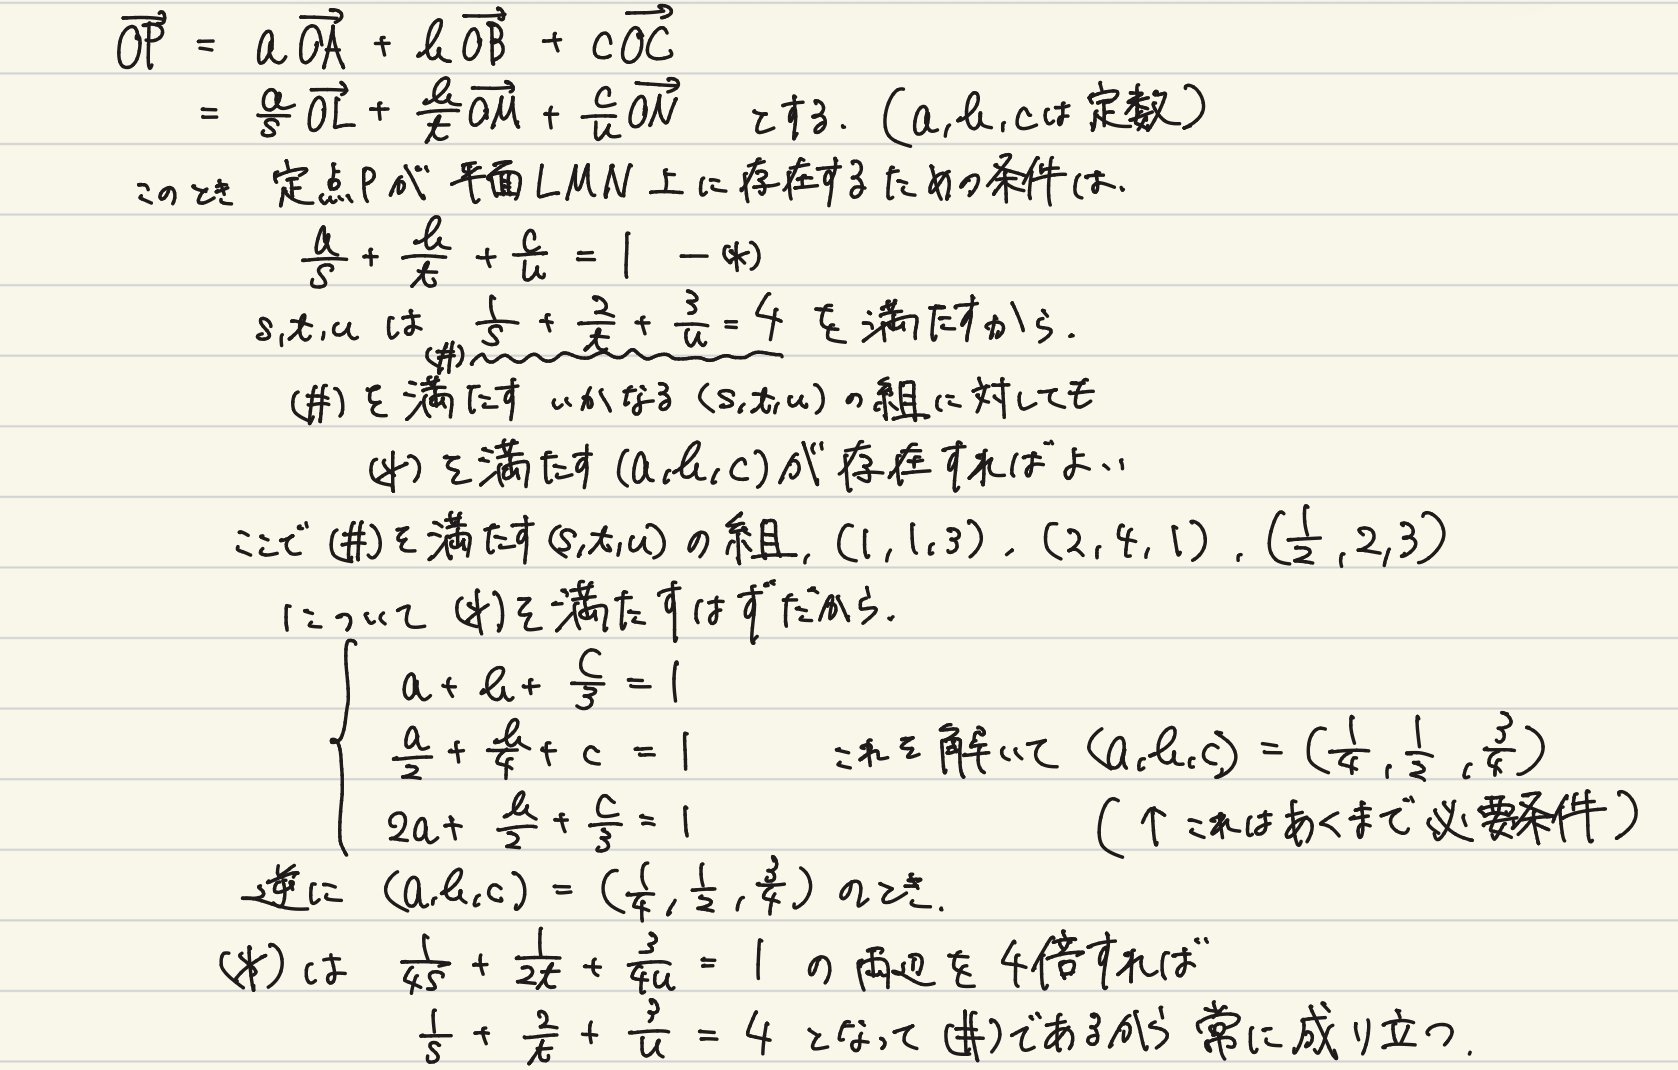 $\overrightarrow{OP} = a\overrightarrow{OA} + b\overrightarrow{OB} + c\overrightarrow{OC}$
$= \frac{a}{s}\overrightarrow{OL} + \frac{b}{t}\overrightarrow{OM} + \frac{c}{u}\overrightarrow{ON}$ とする. (a, b, c は 定数)
このとき 定点Pが 平面LMN 上に存在するための条件は.
$\frac{a}{s} + \frac{b}{t} + \frac{c}{u} = 1$ —(*)
s, t, u は $\frac{1}{s} + \frac{2}{t} + \frac{3}{u} = 4$ を満たすから.
(#)
(#) を満たす いかなる (s, t, u) の組に対しても
(*) を満たす (a, b, c) が存在すればよい
ここで (#) を満たす (s, t, u) の組, (1, 1, 3), (2, 4, 1), ($\frac{1}{2}$, 2, 3)
について (*) を満たすはずだから.
$a + b + \frac{c}{3} = 1$
$\frac{a}{2} + \frac{b}{4} + c = 1$ これを解いて $(a, b, c) = (\frac{1}{4}, \frac{1}{2}, \frac{3}{4})$
$2a + \frac{b}{2} + \frac{c}{3} = 1$ (↑ これはあくまで必要条件)
逆に $(a, b, c) = (\frac{1}{4}, \frac{1}{2}, \frac{3}{4})$ のとき.
(*) は $\frac{1}{4s} + \frac{1}{2t} + \frac{3}{4u} = 1$ の両辺を4倍すれば
$\frac{1}{s} + \frac{2}{t} + \frac{3}{u} = 4$ となって (#) であるから 常に成り立つ.